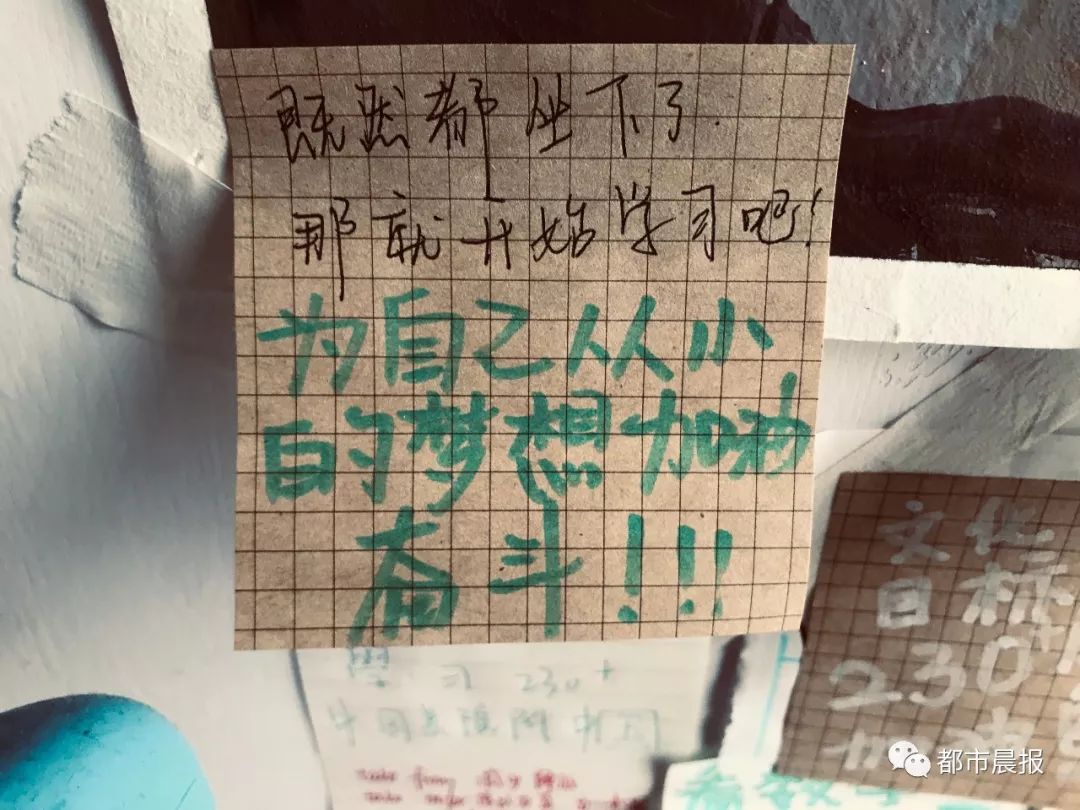 既然都坐下了.
那就开始学习吧!
为自己从小
的梦想加油
奋斗!!!
文化
目标
230+
加油
学习 230+
都市晨报